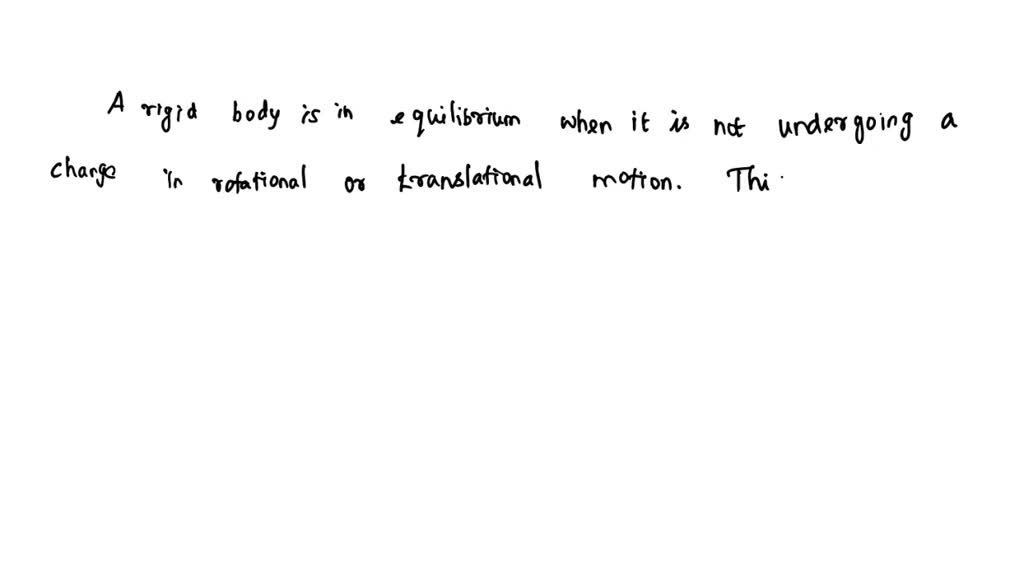 A rigid body is in equilibrium when it is not undergoing a
change in rotational or translational motion. Thi